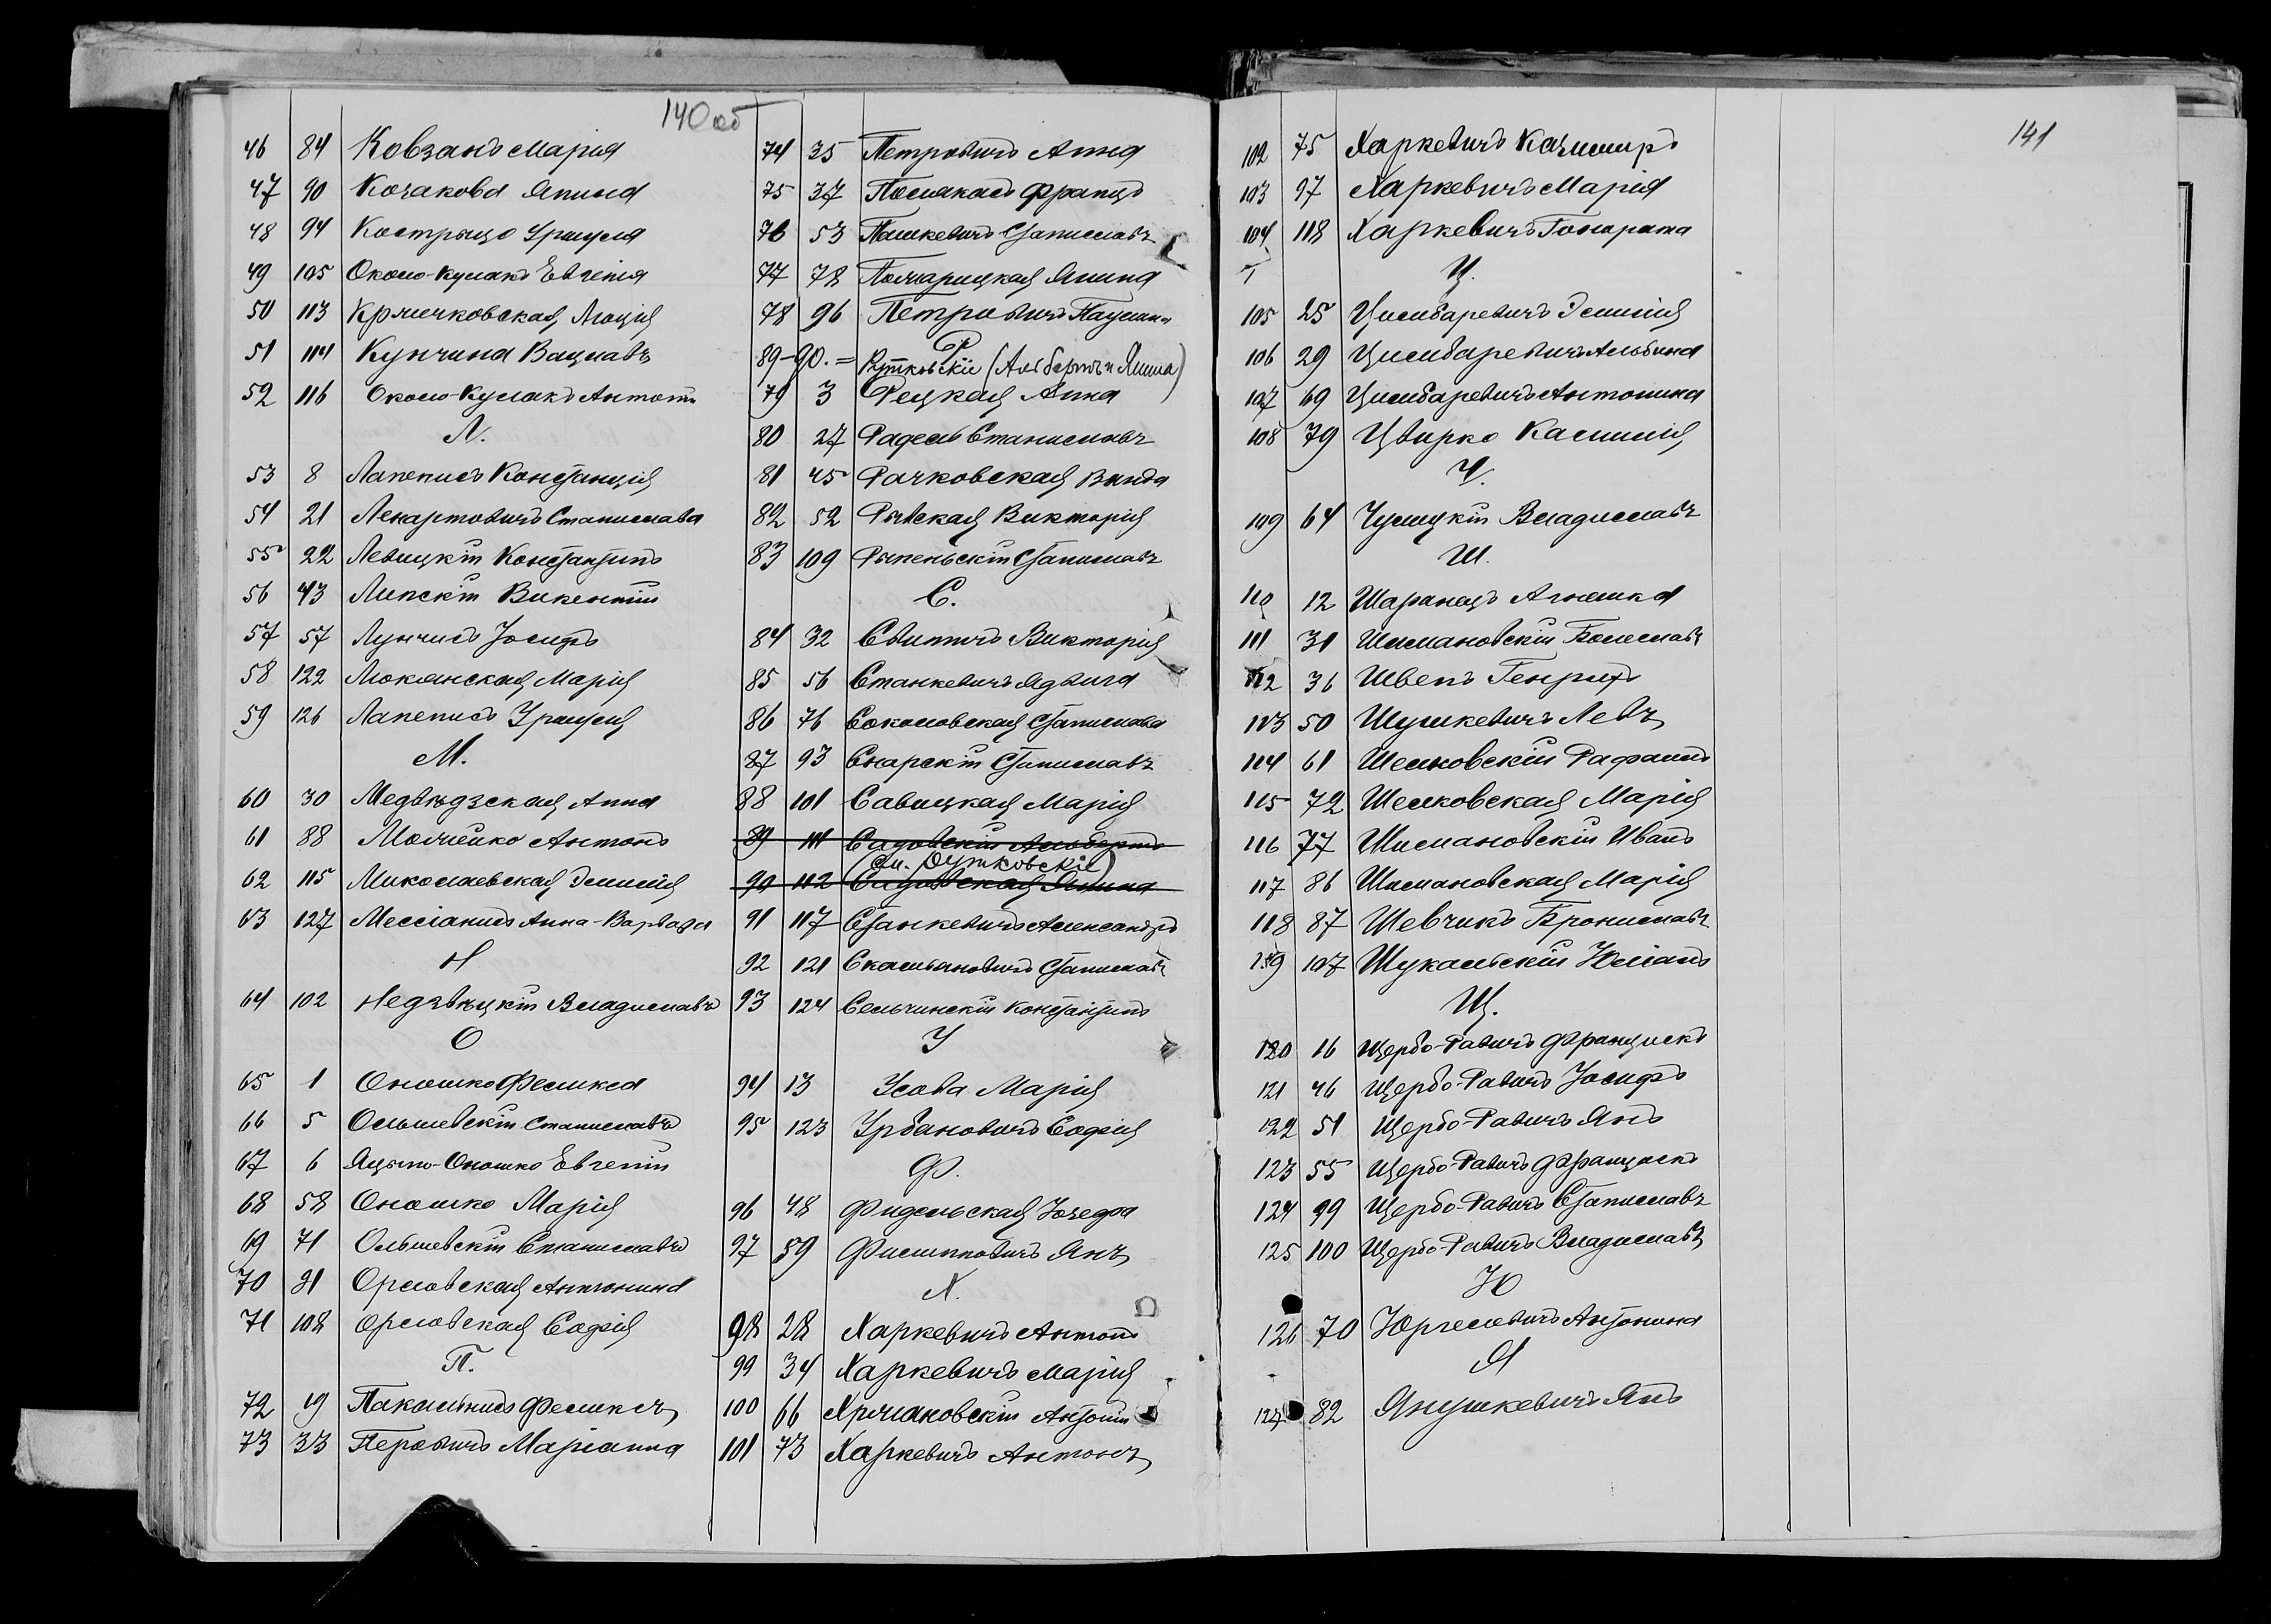 140 об
46 84 Ковзанъ Марія
47 90 Козакова Янина
48 94 Кострыцо Уршуля
49 105 Около-Кулакъ Евгенія
50 113 Крличковская Люція
51 114 Кунчина Вацлавъ
52 116 Около-Кулакъ Антонъ
Л.
53 8 Лапенисъ Констанція
54 21 Ленартовичъ Станислава
55 22 Левицкій Константинъ
56 43 Липскій Викентій
57 57 Лунчисъ Іосифъ
58 122 Люкянская Марія
59 126 Лапенисъ Уршуля
М.
60 30 Медвѣдзская Анна
61 88 Молчейко Антонъ
62 115 Миколаевская Эмилія
63 127 Мессіанисъ Анна-Варвара
Н
64 102 Недзвѣцкій Владиславъ
О
65 1 Оношко Феликса
66 5 Ольшевскій Станиславъ
67 6 Яцыно-Оношко Евгеній
68 58 Оношко Марія
69 71 Ольшевскій Станиславъ
70 81 Орловская Антонина
71 108 Орловская Софія
П.
72 19 Пакальнисъ Феликсъ
73 33 Перовичъ Маріанна
74 35 Петровичъ Анна
75 37 Полякасъ Францъ
76 53 Пашкевичъ Станиславъ
77 78 Почарицкая Янина
78 96 Петровичъ Паулина
Р
89-90. = Рутковскіе (Альбертъ и Янина)
79 3 Рецкая Анна
80 27 Радель Станиславъ
81 45 Рачковская Ванда
82 52 Рывская Викторія
83 109 Рыпеньскій Станиславъ
С.
84 32 Свитичъ Викторія
85 56 Станкевичъ Ядвига
86 76 Соколовская Станислава
87 93 Снарскій Станиславъ
88 101 Савицкая Марія
89 111 Садовскій Альбертъ
(См. Рутковскіе)
90 112 Садовская Янина
91 117 Станкевичъ Александръ
92 121 Скальяновичъ Станиславъ
93 124 Сельчинскій Константинъ
У
94 13 Усова Марія
95 123 Урбановичъ Софія
Ф.
96 48 Фидельская Юзефа
97 59 Филипповичъ Янъ
Х.
98 28 Харкевичъ Антонъ
99 34 Харкевичъ Марія
100 66 Хрчановскій Антоній
101 73 Харкевичъ Антонъ
141
102 75 Харкевичъ Казимиръ
103 97 Харкевичъ Марія
104 118 Харкевичъ Гонората
Ц.
105 25 Цимбаревичъ Эмилія
106 29 Цимбаревичъ Альбина
107 69 Цимбаревичъ Антонина
108 79 Цвирко Камилія
Ч.
109 64 Чулицкій Владиславъ
Ш.
110 12 Шаранецъ Агнешка
111 31 Шимановскій Болеславъ
112 36 Швепъ Генрихъ
113 50 Шушкевичъ Левъ
114 61 Шелковскій Рафаилъ
115 72 Шелковская Марія
116 77 Шимановскій Иванъ
117 86 Шимановская Марія
118 87 Шевчикъ Брониславъ
119 107 Шукальскій Юліанъ
Щ.
120 16 Щербо-Равичъ Францискъ
121 46 Щербо-Равичъ Іосифъ
122 51 Щербо-Равичъ Янъ
123 55 Щербо-Равичъ Францискъ
124 99 Щербо-Равичъ Станиславъ
125 100 Щербо-Равичъ Владиславъ
Ю
126 70 Юргелевичъ Антонина
Я
127 82 Янушкевичъ Янъ